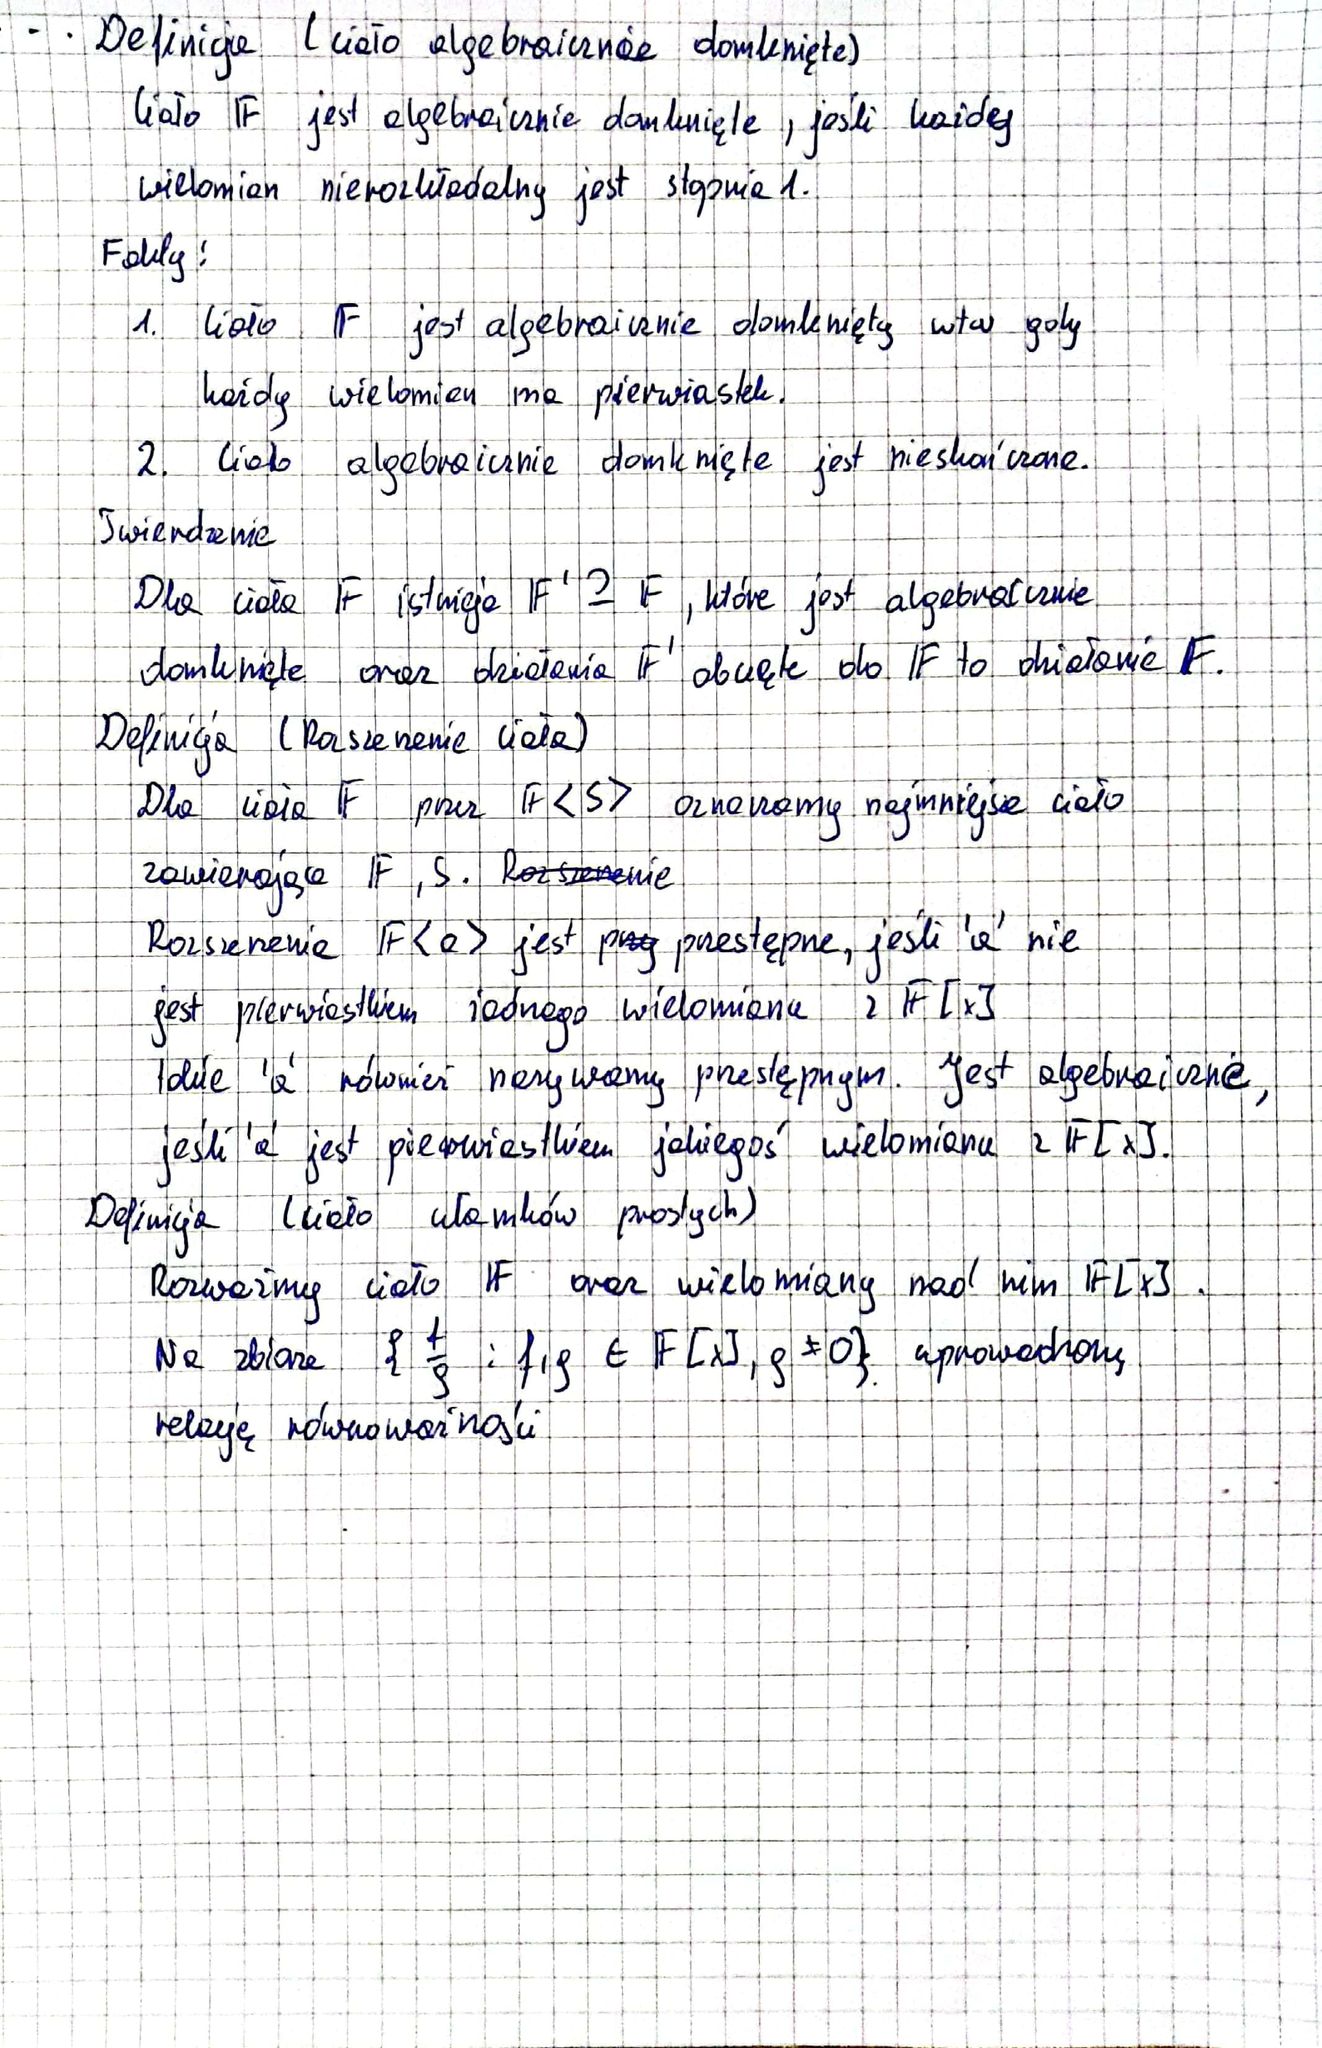 Definicja (ciało algebraicznie domknięte)
Ciało 𝔽 jest algebraicznie domknięte, jeśli każdy
wielomian nierozkładalny jest stopnia 1.
Fakty:
1. Ciało 𝔽 jest algebraicznie domknięty wtw gdy
każdy wielomian ma pierwiastek.
2. Ciało algebraicznie domknięte jest nieskończone.
Twierdzenie
Dla ciała 𝔽 istnieje 𝔽' ⊇ 𝔽, które jest algebraicznie
domknięte oraz działania 𝔽' obcięte do 𝔽 to działanie 𝔽.
Definicja (Rozszerzenie ciała)
Dla ciała 𝔽 przez 𝔽<S> oznaczamy najmniejsze ciało
zawierające 𝔽, S. Rozszerzenie
Rozszerzenie 𝔽<a> jest przestępne, jeśli 'a' nie
jest pierwiastkiem żadnego wielomianu z 𝔽[x]
Takie 'a' również nazywamy przestępnym. Jest algebraiczne,
jeśli 'a' jest pierwiastkiem jakiegoś wielomianu z 𝔽[x].
Definicja (ciało ułamków prostych)
Rozważmy ciało 𝔽 oraz wielomiany nad nim 𝔽[x].
Na zbiorze {f/g : f,g ∈ 𝔽[x], g ≠ 0} wprowadzamy
relację równoważności